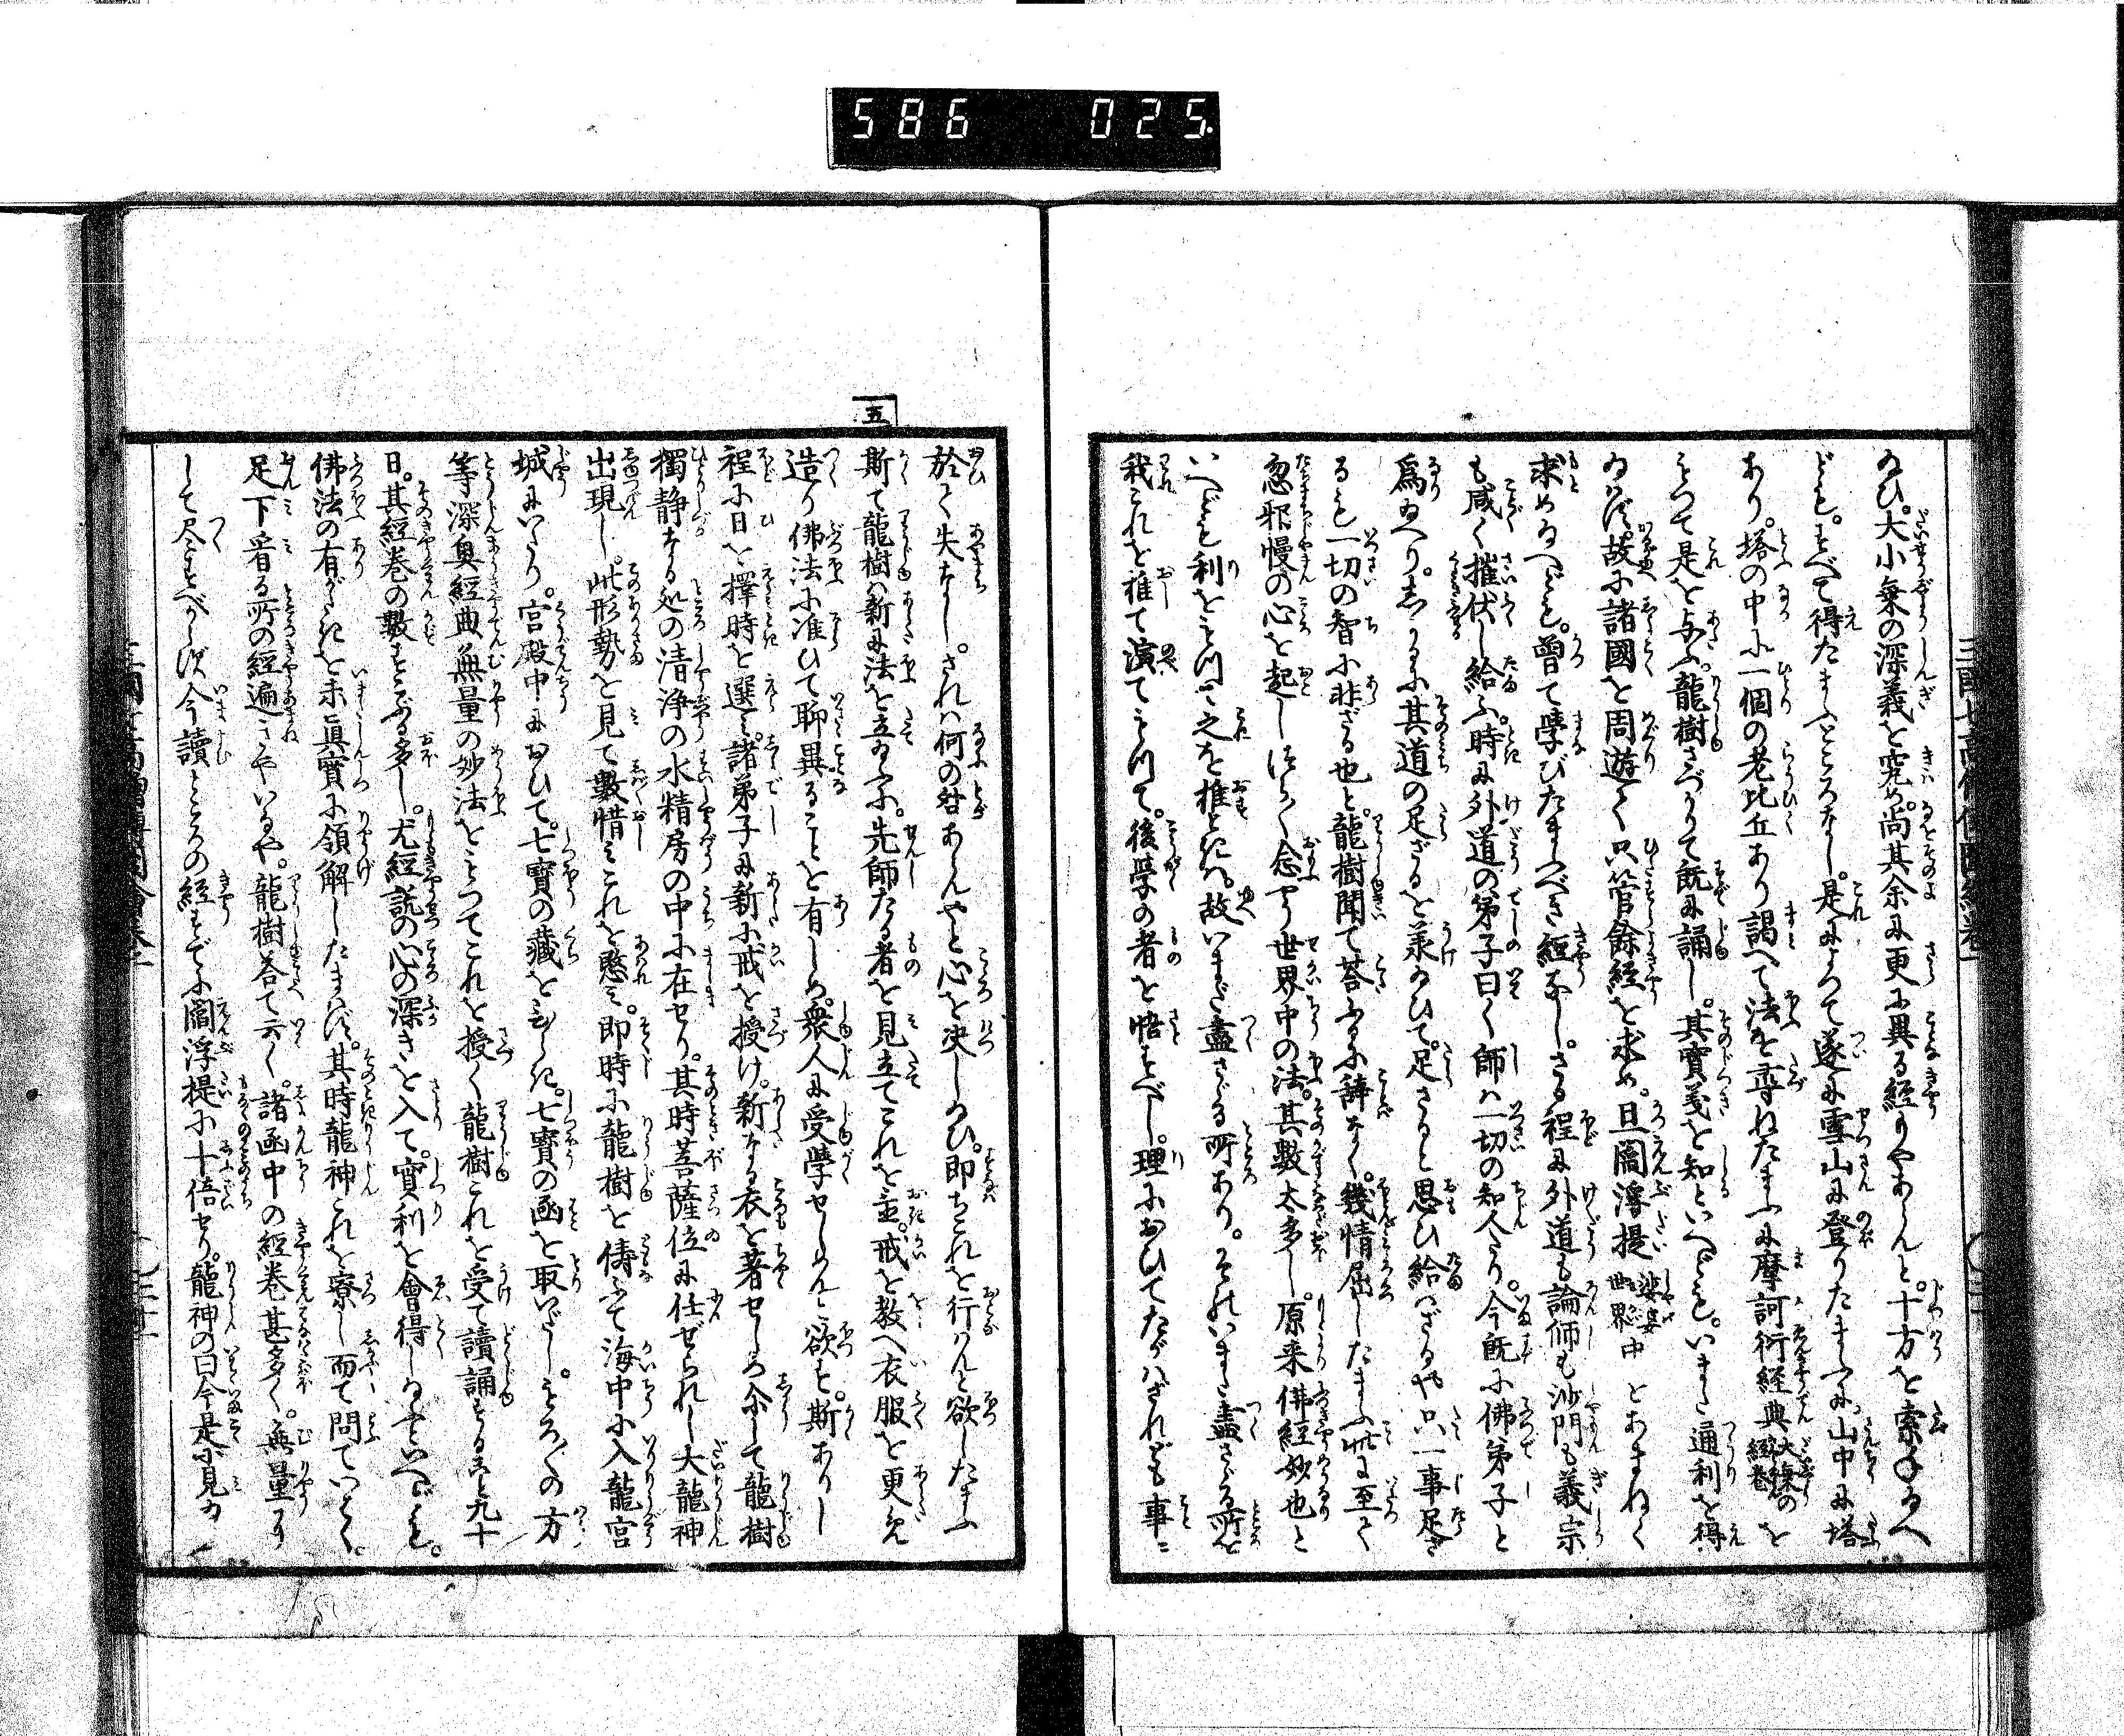 586 025
ゐひ。大小乗の深義を究め。尚其余に更に異る経もやあらんと。十方を索ね給へ
ども。すべて得たまふところなし。是によつて遂に雪山に登りたまふに。山中に塔
あり。塔の中に一個の老比丘あり謁へて法を尋ねたまふに摩訶衍経典大乗の経巻を
もつて是を与ふ。龍樹さづかりて既に誦し。其實義を知といへども。いまだ通利を得
給はず。故に諸國を周遊く只管餘経を求め。且閻浮提娑婆世界中とあまねく
求め給へども。曾て學びたまふべき経なし。さる程に外道も論師も沙門も義宗
も咸く摧伏し給ふ。時に外道の弟子曰く師は一切の知人たり。今既に佛弟子と
爲給へり。しかるに其道の足ざるを羕給ひて。足さると思ひ給はざるや只一事足さ
るも一切の智に非ざる也と。龍樹聞て荅ふるに辞なく。幾情屈したまふ此に至て
忽邪慢の心を起しはく念やう世界中の法。其數太多し原来佛経妙也と
いへども利をもつて之を推ときは。故いまだ盡さゞる所あり。それいまだ盡さゞる所を
我これを推て演てもつて。後學の者を悟すべし。理においてたがはざれども事に
五
於て失なし。されは何の咎あらんやと心を决し給ひ。即ちこれを行はんと欲したまふ
斯て龍樹は新に法を立給ふ。先師たる者を見立てこれを主。戒を教へ衣服を更え
造り佛法に准ひて聊異ることを有しめ。衆人に受學せしめんと欲す。斯ありし
程に日を擇時を選み。諸弟子に新に戒を授け。新なる衣を著せしめ尒して龍樹
獨静なる処の清浄の水精房の中に在せり。其時菩薩位に任ぜられし大龍神
出現し。此形勢を見て數惜みこれを愍み。即時に龍樹を倶ふて海中に入龍宮
城にいたり。宮殿中において。七寳の藏をひらき。七寳の函を取いだし。もろ〳〵の方
等深奥経典無量の妙法をもつてこれを授く龍樹これを受て讀誦すること九十
日。其経巻の數すこぶる多し。尤経説の心の深きを入て。實利を會得し給ふといへども。
佛法の有がたきを未眞實に領解したまはず。其時龍神これを察し而て問ていはく。
足下看る所の経遍さやいなや。龍樹荅て云く。諸函中の経巻甚多く。無量に
して尽すべからず今讀ところの経すでに閻浮提に十倍せり。龍神の曰今是に見る